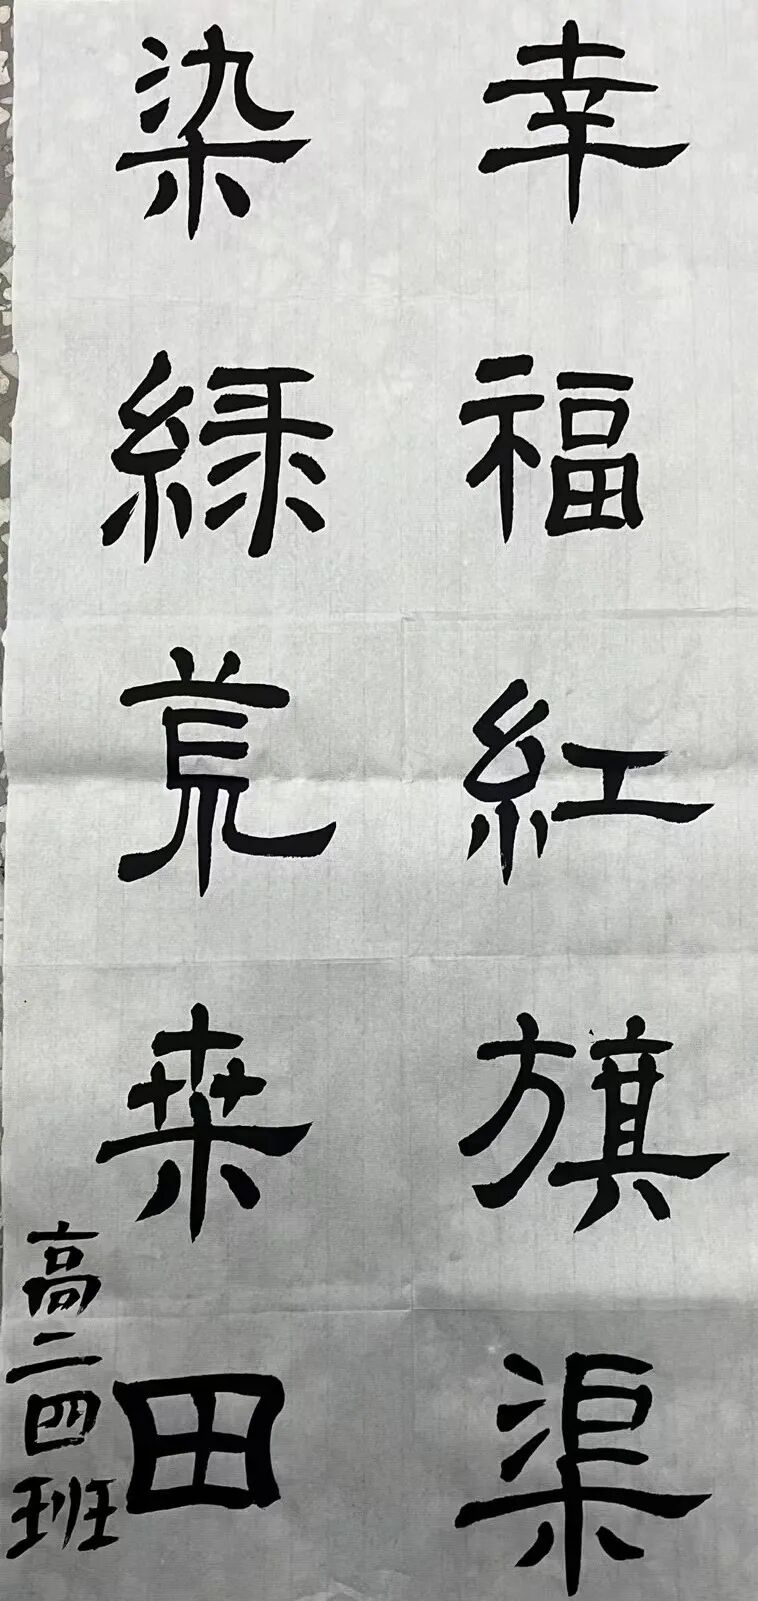 幸福紅旗渠
染綠荒桒田
高二四班